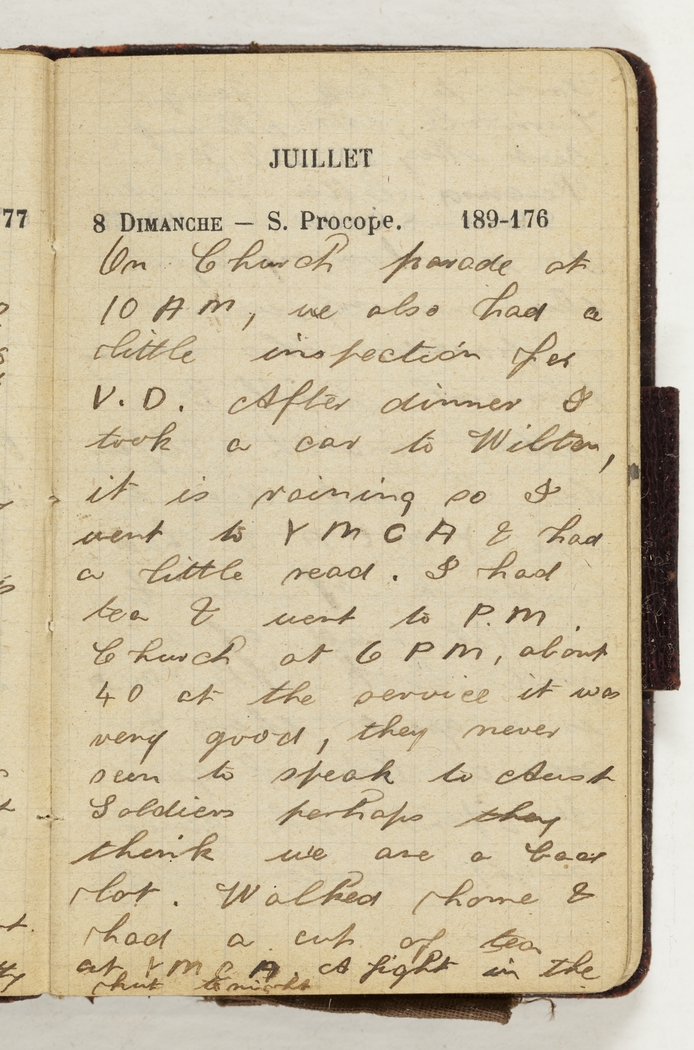 JUILLET
77
8 DIMANCHE — S. Procope. 189-176
On Church parade at
10 AM, we also had a
little inspection for
V.D. After dinner I
took a car to Wilton,
it is raining so I
went to Y M C A & had
a little read. I had
tea & went to P.M.
Church at 6 PM, about
40 at the service it was
very good, they never
seem to speak to Aust
Soldiers perhaps they
think we are a bad
lot. Walked home &
had a cup of tea
at YMCA. A fight in the
hut tonight